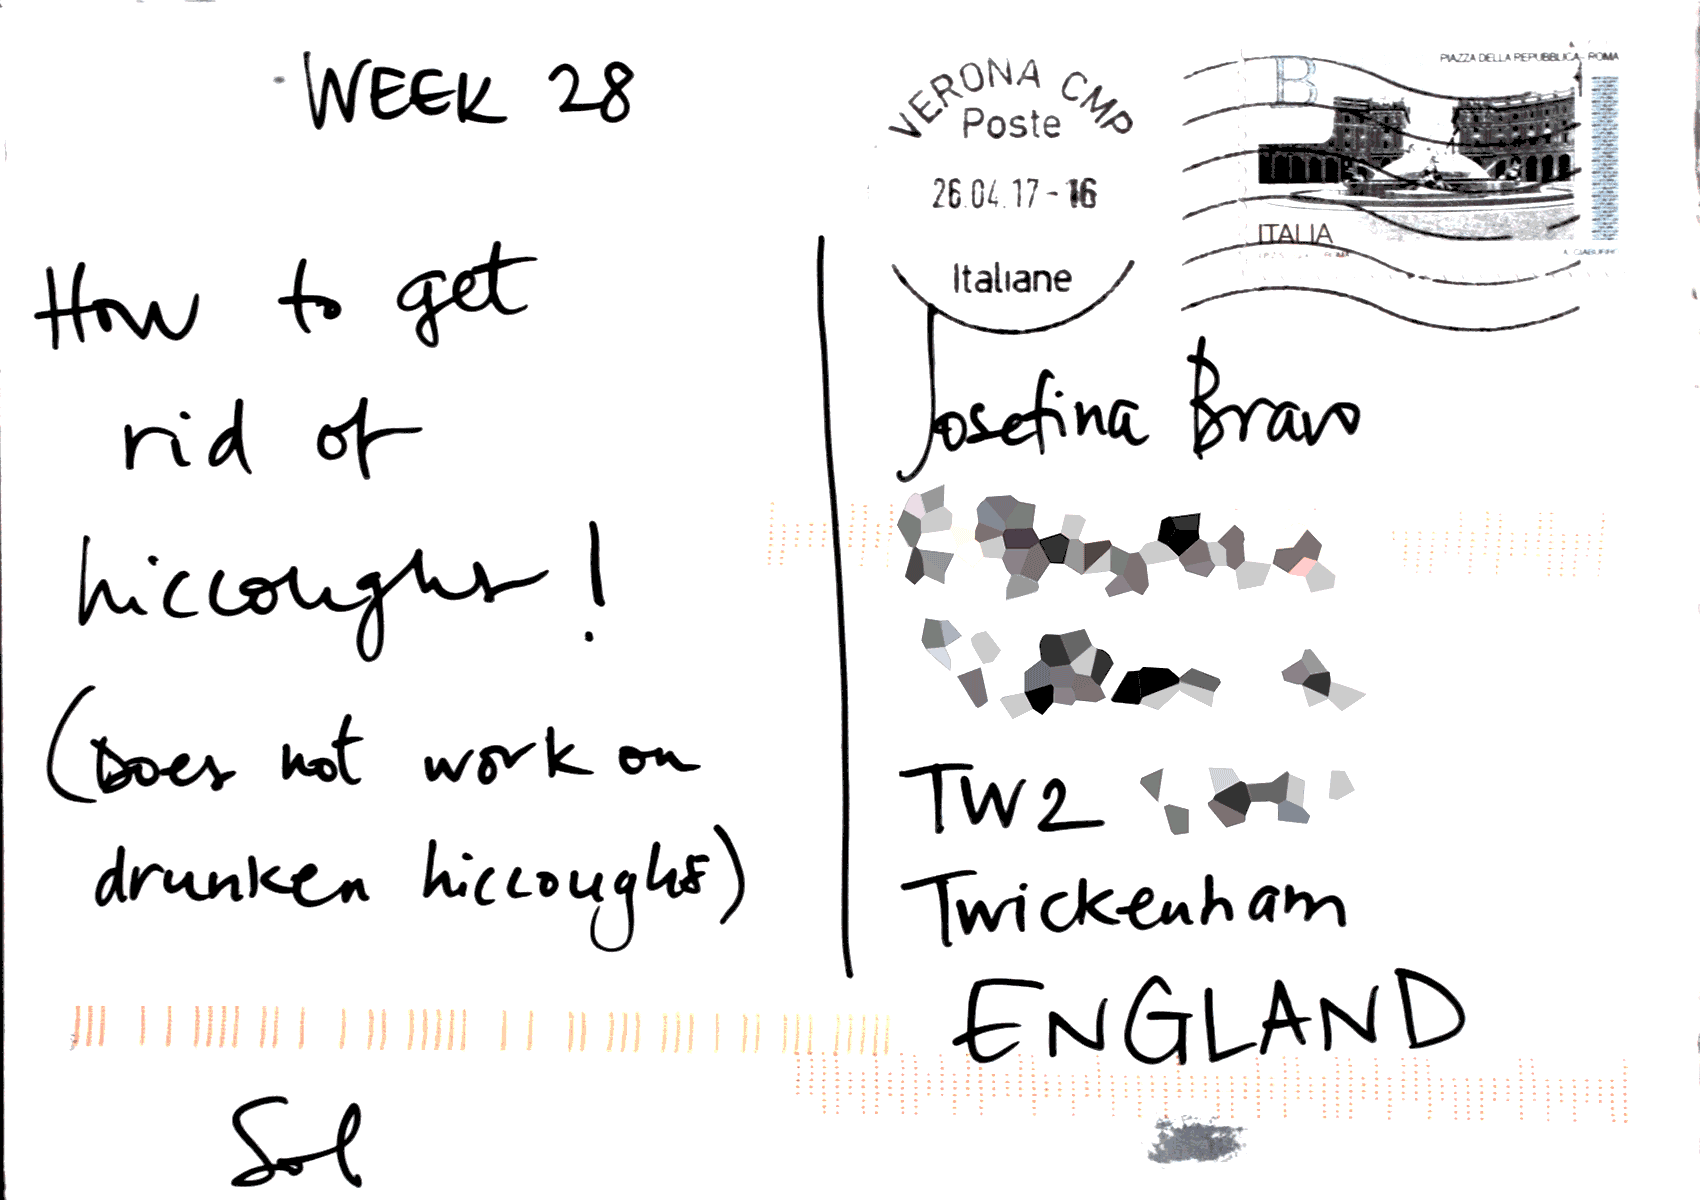 WEEK 28
How to get
rid of
hiccoughs!
(Does not work on
drunken hiccoughs)
Sol
VERONA CMP
Poste
26.04.17-16
Italiane
PIAZZA DELLA REPUBBLICA - ROMA
B
ITALIA
Josefina Bravo
TW2
Twickenham
ENGLAND